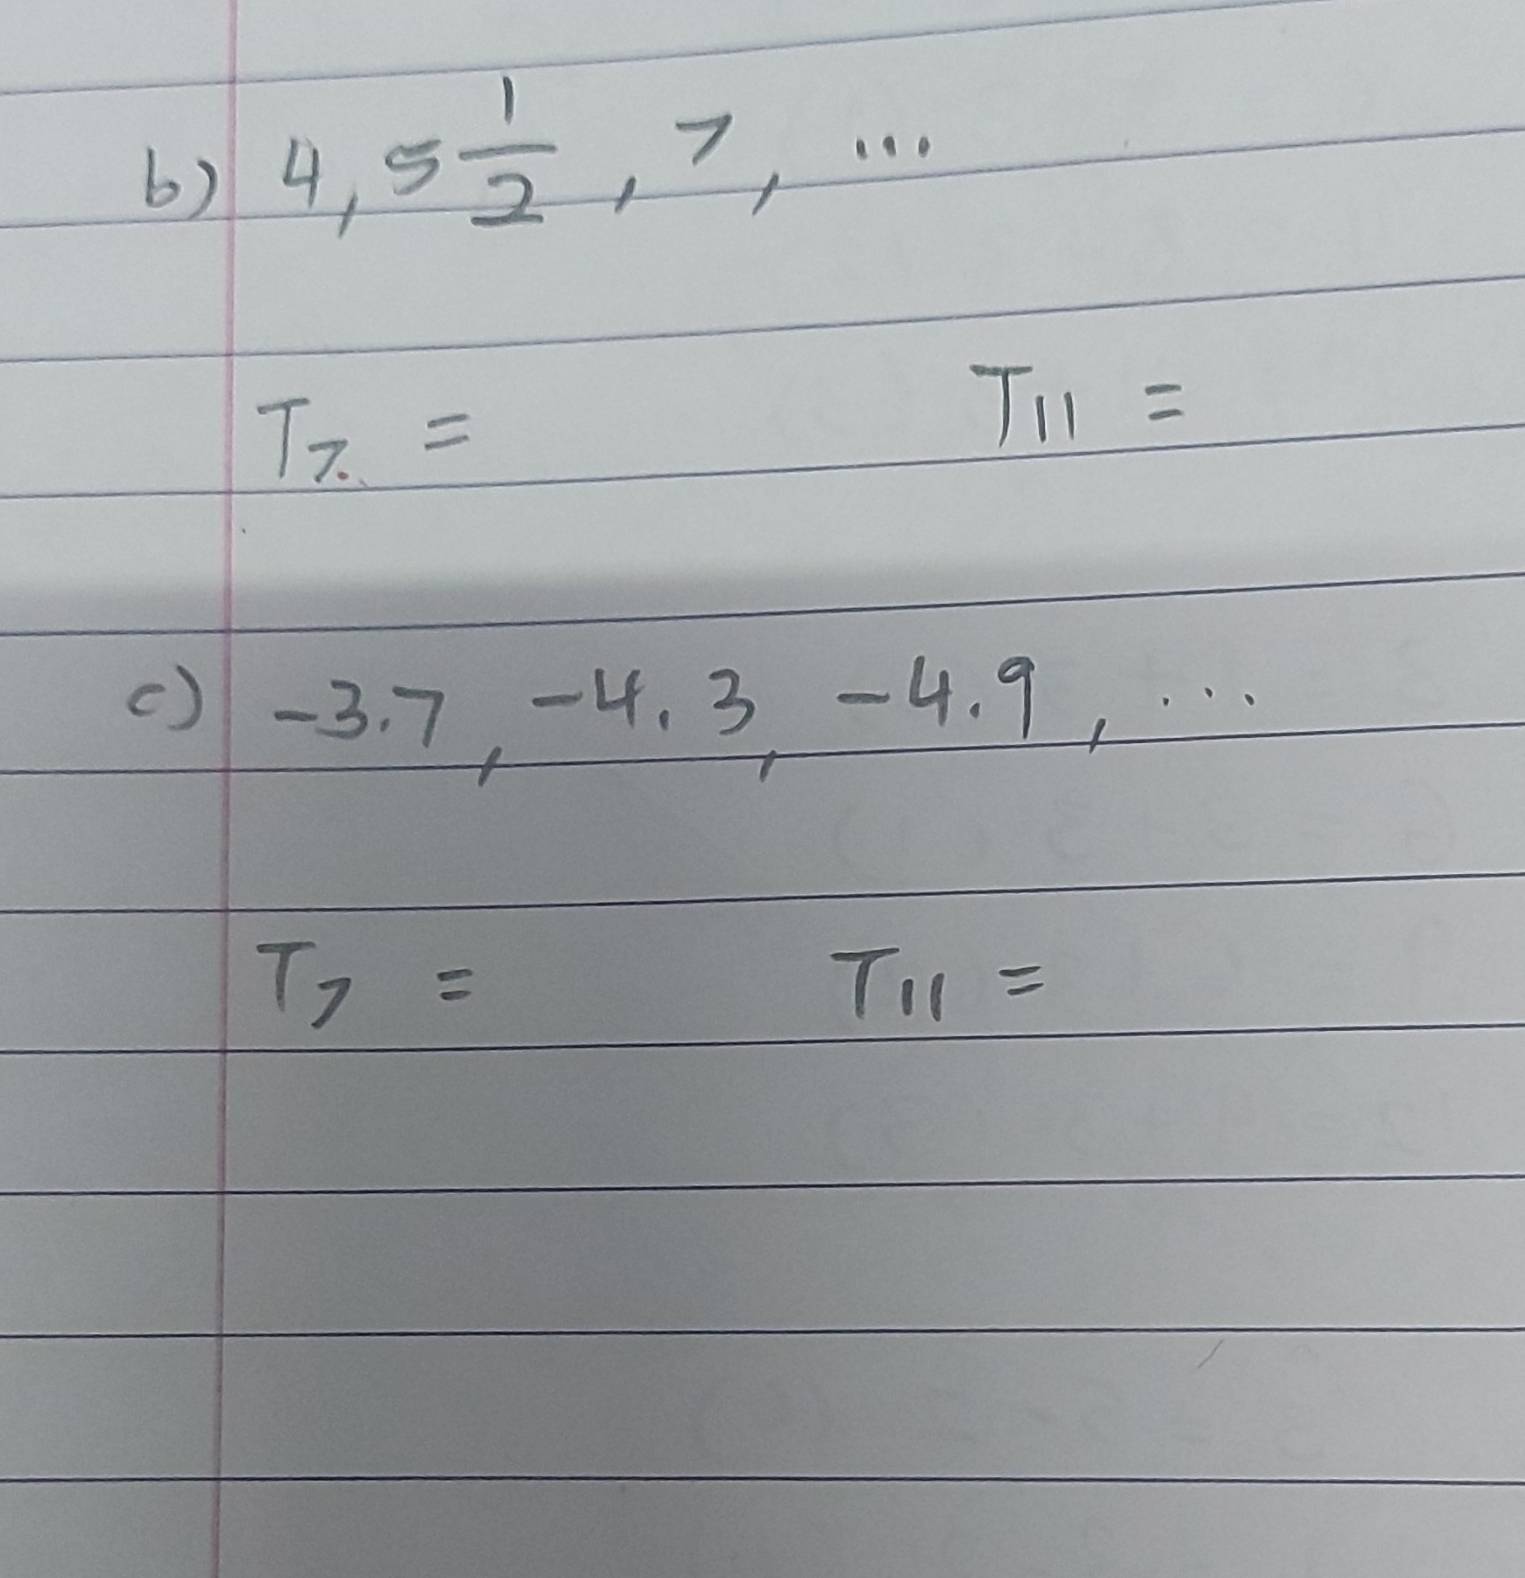 b) 4, 5 1/2, 7, ...
T7 = T11 =
c) -3.7, -4.3, -4.9, ...
T7 = T11 =